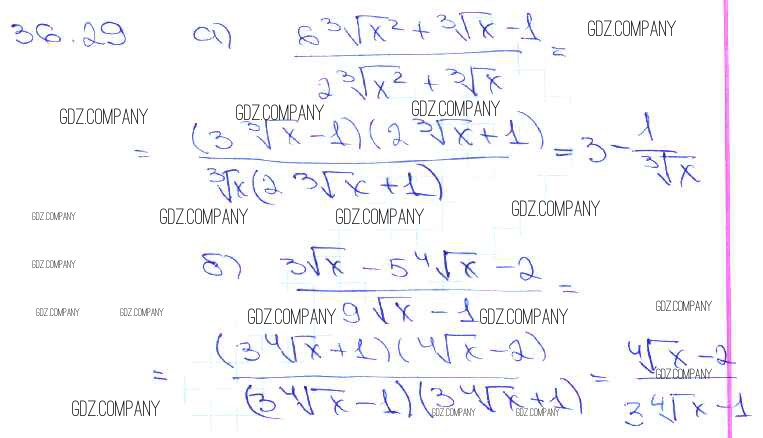 36.29 а) (6∛x² + ∛x - 1) / (2∛x² + ∛x) =
GDZ.COMPANY
GDZ.COMPANY GDZ.COMPANY GDZ.COMPANY
= (3∛x - 1)(2∛x + 1) / (∛x(2∛x + 1)) = 3 - 1/∛x
GDZ.COMPANY GDZ.COMPANY GDZ.COMPANY GDZ.COMPANY
GDZ.COMPANY
б) (3√x - 5∜x - 2) / (9√x - 1) =
GDZ.COMPANY GDZ.COMPANY GDZ.COMPANY GDZ.COMPANY GDZ.COMPANY
= (3∜x + 1)(∜x - 2) / ((3∜x - 1)(3∜x + 1)) = (∜x - 2) / (3∜x - 1)
GDZ.COMPANY
GDZ.COMPANY GDZ.COMPANY GDZ.COMPANY